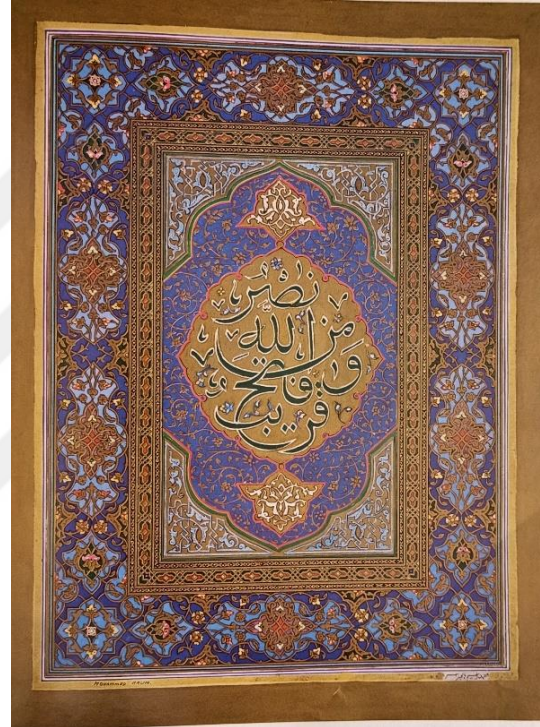 نصر
من الله
و فتح
قريب
MOHAMMED